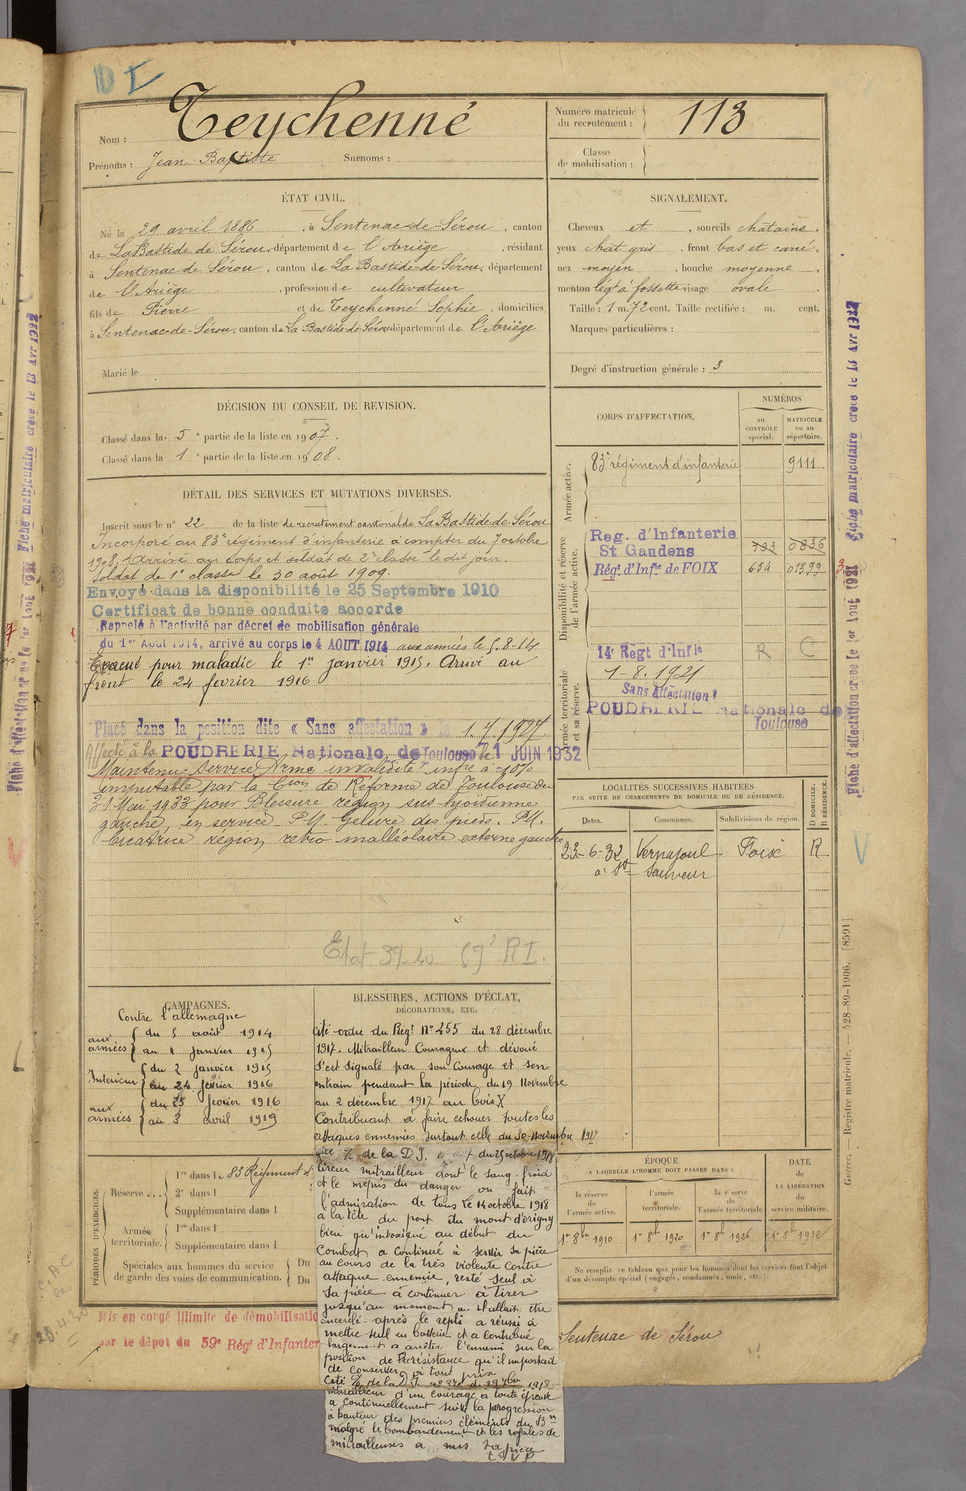 DI
Nom : Teychenné
Prénoms : Jean Baptiste Surnoms :
Numéro matricule
du recrutement : 113
Classe
de mobilisation :
ÉTAT CIVIL.
Né le 29 avril 1886, à Sentenac-de-Sérou, canton
de La Bastide de Sérou, département de l'Ariège, résidant
à Sentenac de Sérou, canton de La Bastide-de-Sérou, département
de l'Ariège, profession de cultivateur
fils de Pierre et de Teychenné Sophie, domiciliés
à Sentenac-de-Sérou, canton de La Bastide-de-Sérou département de l'Ariège
Marié le
SIGNALEMENT.
Cheveux et, sourcils châtains,
yeux chât gris, front bas et carré,
nez moyen, bouche moyenne,
menton légt à fossette visage ovale.
Taille : 1 m. 72 cent. Taille rectifiée : m. cent.
Marques particulières :
Degré d'instruction générale : 3
DÉCISION DU CONSEIL DE REVISION.
Classé dans la 5e partie de la liste en 1907.
Classé dans la 1e partie de la liste en 1908.
DÉTAIL DES SERVICES ET MUTATIONS DIVERSES.
Inscrit sous le n° 22 de la liste de recrutement cantonal de La Bastide-de-Sérou
Incorporé au 83e régiment d'infanterie à compter du 7 octobre
1908. Arrivé au corps et soldat de 2e classe le dit jour.
Soldat de 1e classe le 30 août 1909.
Envoyé dans la disponibilité le 25 Septembre 1910
Certificat de bonne conduite accordé
Rappelé à l'activité par décret de mobilisation générale
du 1er Août 1914, arrivé au corps le 4 AOUT 1914 aux armées le 5-8-14
Evacué pour maladie le 1er janvier 1915. Arrivé au
front le 24 février 1916
Placé dans la position dite « Sans affectation » le 1.7.1927
Affecté à la POUDRERIE Nationale de Toulouse 1 JUIN 1932
Maintenu Service Armé invalidité infre à 10%
imputable par la Cion de Réforme de Toulouse du
31 Mai 1933 pour Blessure région sus-hyoïdienne
gauche, en service. P.M. Gelure des pieds. P.M.
Cicatrice région rétro-malléolaire externe gauche
Etat 39-40 59e RI.
CORPS D'AFFECTATION.
NUMÉROS
au
CONTRÔLE
spécial.
MATRICULE
ou au
répertoire.
Armée active.
83e régiment d'infanterie 9111
Disponibilité et réserve
de l'armée active.
Reg. d'Infanterie
St Gaudens 0836
Régt d'Infie de FOIX 654 01399
Armée territoriale
et sa réserve.
14e Regt d'Infie R C
1-8-1921
Sans affectation
POUDRERIE Nationale de
Toulouse
LOCALITÉS SUCCESSIVES HABITÉES
PAR SUITE DE CHANGEMENTS DE DOMICILE OU DE RÉSIDENCE.
Dates. Communes. Subdivisions de région. D DOMICILE. R RÉSIDENCE.
23-6-32 Vernajoul Foix R
à St Sauveur
CAMPAGNES.
Contre l'allemagne
aux armées du 5 août 1914
au 1 janvier 1915
Intérieur du 2 janvier 1915
au 24 février 1916
aux armées du 25 février 1916
au 3 avril 1919
BLESSURES, ACTIONS D'ÉCLAT,
DÉCORATIONS, ETC.
Cité ordre du Régt N° 255 du 28 décembre
1917. Mitrailleur Courageux et dévoué
S'est signalé par son Courage et son
entrain pendant la période du 19 Novembre
au 2 décembre 1917 au bois X
Contribuant à faire échouer toutes les
attaques ennemies surtout celle du 30 Novembre 1917
de la D.I. du 25 octobre 1918
tireur mitrailleur dont le sang-froid
et le mépris du danger on fait
l'admiration de tous. Le 14 octobre 1918
à la tête du pont du mont d'origny
bien qu'intoxiqué au début du
Combat a Continué à servir sa pièce
au cours de la très violente Contre
attaque ennemie, resté seul à
sa pièce à continuer à tirer
jusqu'au moment où il allait être
encerclé après le repli a réussi à
mettre seul en batterie et a contribué
largement à arrêter l'ennemi sur la
position de Résistance qu'il importait
de conserver à tout prix
Cité de la D.I. 1918
mitrailleur d'un courage à toute épreuve
a continuellement suivi la progression
à hauteur des premiers éléments du Bon
malgré le bombardement et les rafales de
mitrailleuses a mis sa pièce
T S V P
PÉRIODES D'EXERCICES.
Réserve
1re dans le 83 Régiment d'
2e dans l
Supplémentaire dans l
Armée
territoriale.
1re dans l
Supplémentaire dans l
Spéciales aux hommes du service
de garde des voies de communication.
Du
Du
ÉPOQUE
À LAQUELLE L'HOMME DOIT PASSER DANS :
la réserve
de
l'armée active.
l'armée
territoriale.
la réserve
de
l'armée territoriale
DATE
de
LA LIBÉRATION
du
service militaire.
1er 8bre 1910 1er 8bre 1920 1er 8bre 1926
Ne remplir ce tableau que pour les hommes dont les services font l'objet
d'un décompte spécial (engagés, condamnés, omis, etc.).
Mis en congé illimité de démobilisation
par le dépôt du 59e Régt d'Infanterie
Sentenac de Sérou
Fiche d'affectation créée le 1er Aout 1921 Fiche matriculaire créée le 13 Avr 1922
Guerre. — Registre matricule. — 428-89-1906. [8591]